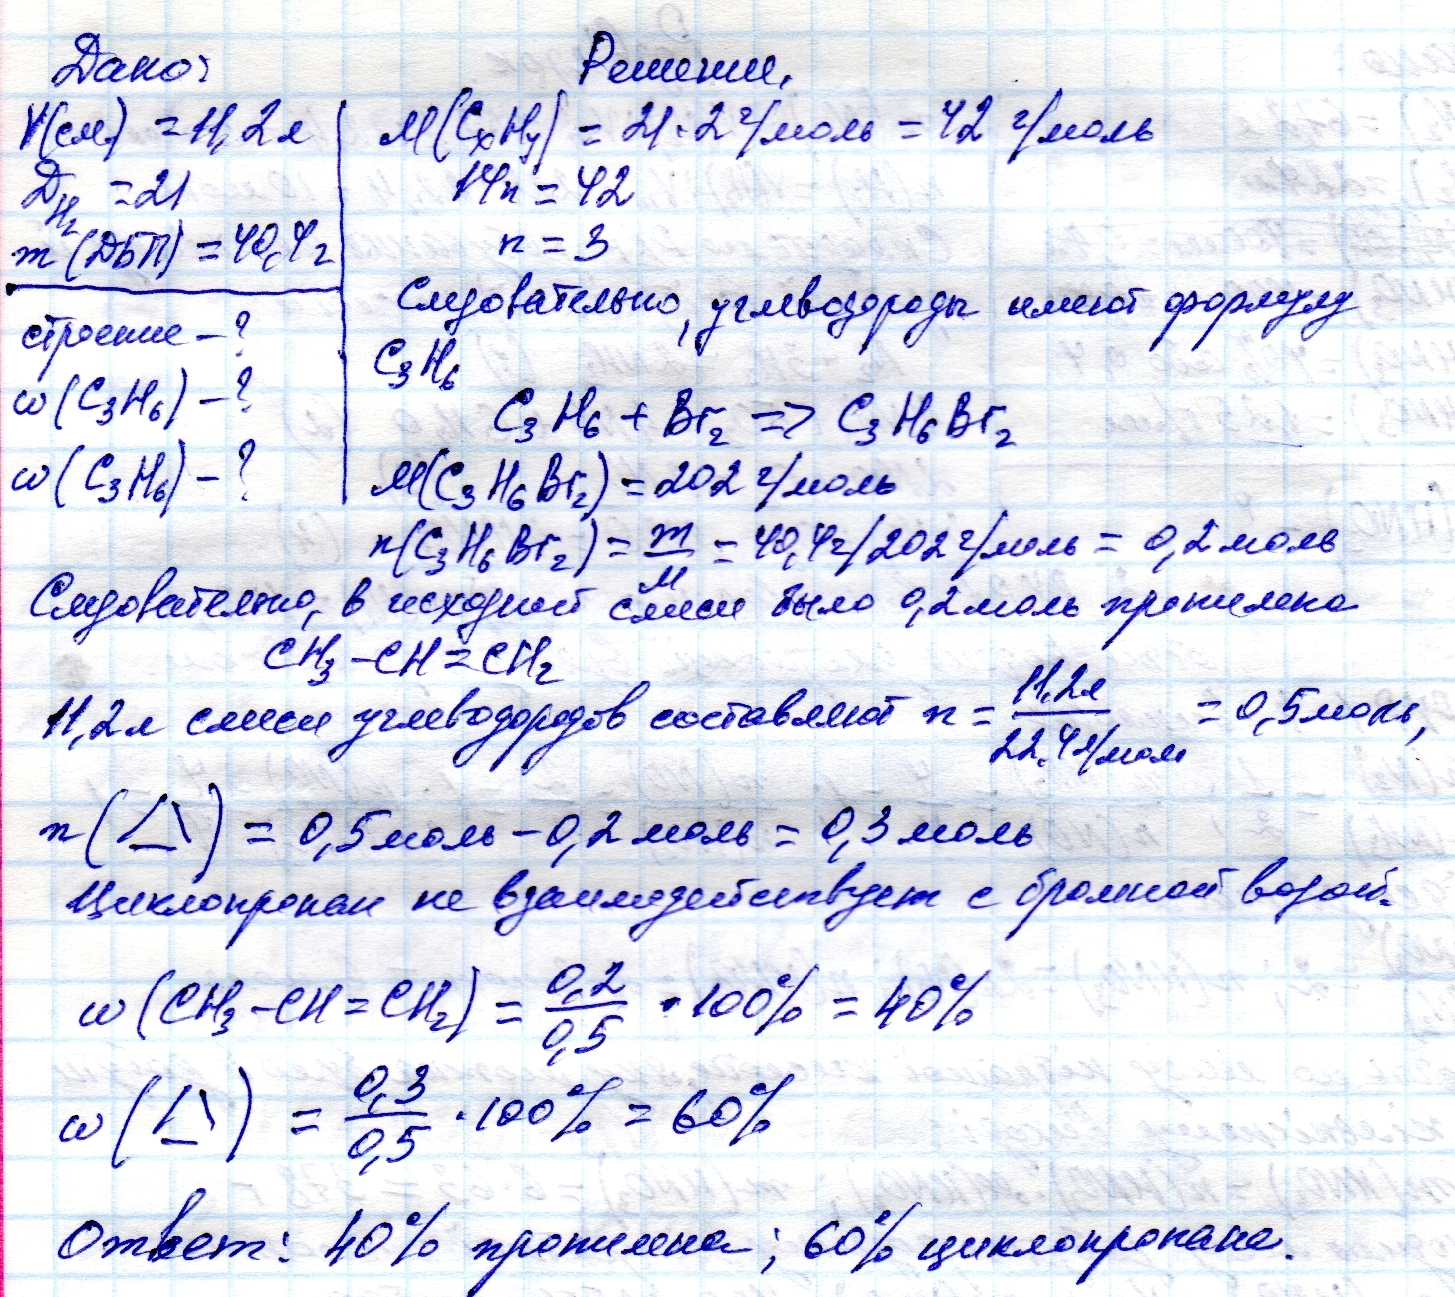 Дано: Решение.
V(см.) = 11,2 л M(CxHy) = 21·2 г/моль = 42 г/моль
D H2 = 21 14n = 42
m(ДБП) = 40,4 г n = 3
Следовательно, углеводороды имеют формулу
строение - ? C3H6
ω(C3H6) - ? C3H6 + Br2 => C3H6Br2
ω(C3H6) - ? M(C3H6Br2) = 202 г/моль
n(C3H6Br2) = m/M = 40,4 г/202 г/моль = 0,2 моль
Следовательно, в исходной смеси было 0,2 моль пропилена
CH3-CH=CH2
11,2 л смеси углеводородов составляют n = 11,2 л/22,4 л/моль = 0,5 моль,
n(△) = 0,5 моль - 0,2 моль = 0,3 моль
Циклопропан не взаимодействует с бромной водой.
ω(CH3-CH=CH2) = 0,2/0,5 · 100% = 40%
ω(△) = 0,3/0,5 · 100% = 60%
Ответ: 40% пропилена; 60% циклопропана.